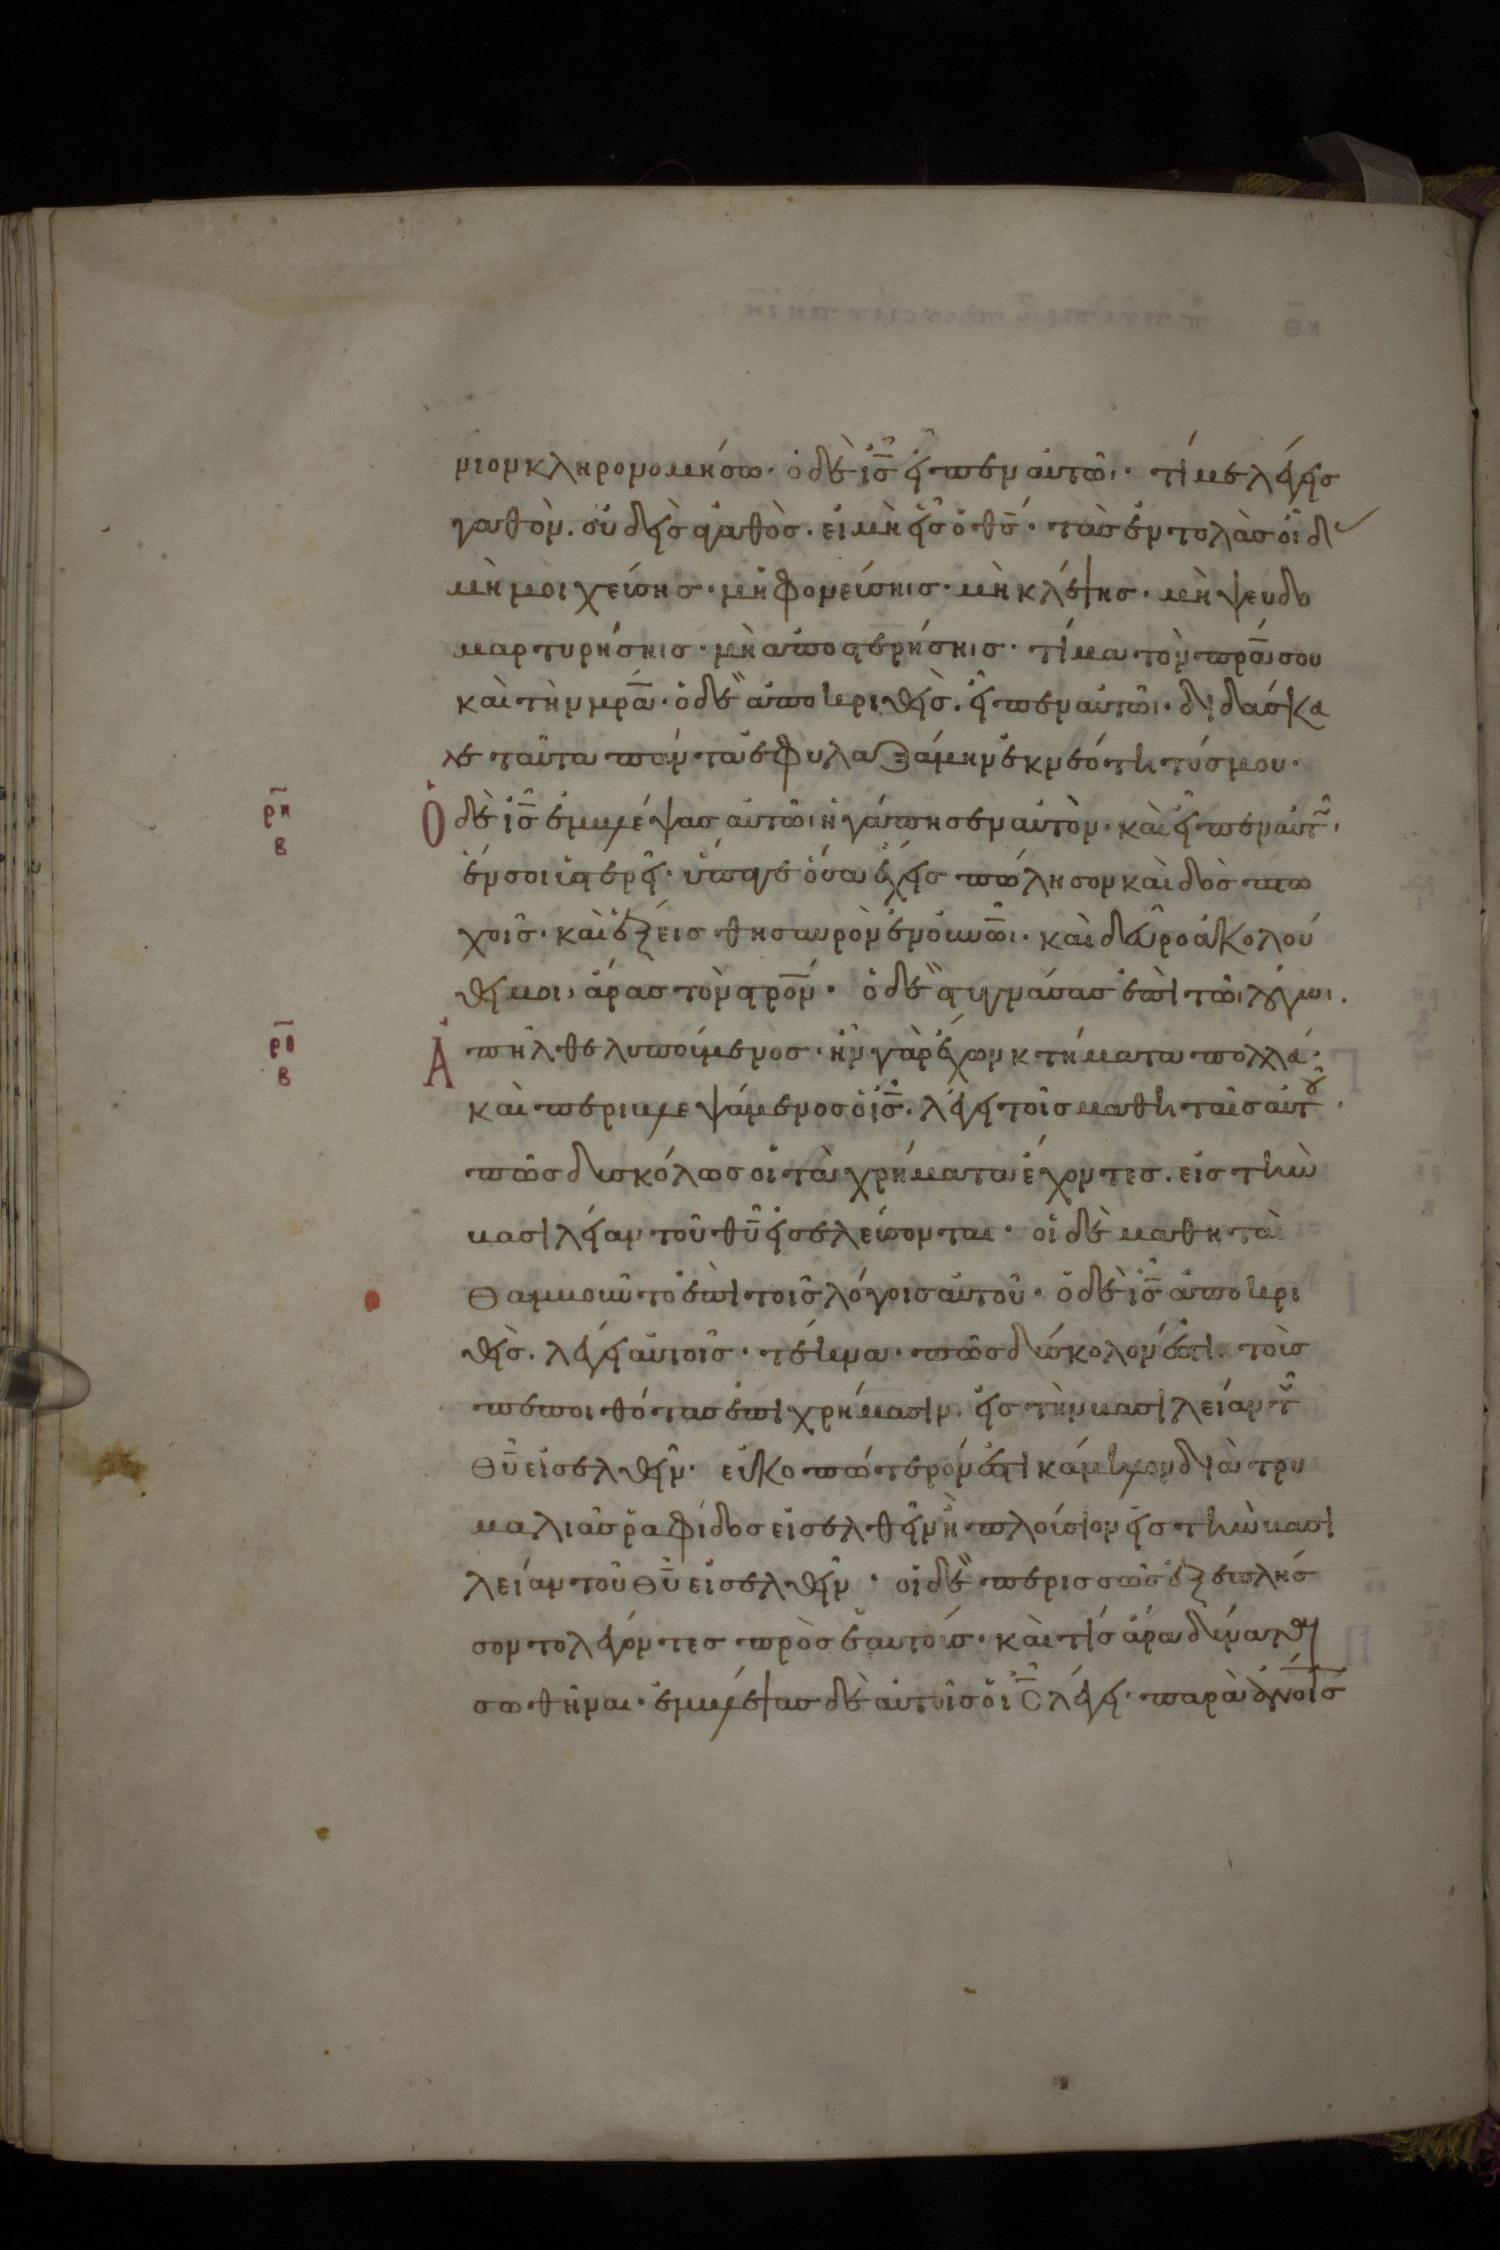 νιον κληρονομήσω· ὁ δὲ ις̅ εἶπεν αὐτῶι· τί με λέγεις
γαθὸν. οὐδεὶς ἀγαθὸς. εἰ μὴ εἷς ὁ θς̅· τὰς ἐντολὰς οἶδ
μὴ μοιχεύσης· μὴ φονεύσηις· μὴ κλέψης· μὴ ψευδο
μαρτυρήσηις· μὴ ἀποστερήσηις· τίμα τὸν πρ̅α σου
καὶ τὴν μρ̅α· ὁ δὲ ἀποκριθεὶς. εἶπεν αὐτῶι· διδάσκα
λε ταῦτα πάντα ἐφυλαξάμην ἐκ νεότητός μου·
ρ̅η Ὁ δὲ ις̅ ἐμβλέψας αὐτῶι ἠγάπησεν αὐτὸν· καὶ εἶπεν αὐτῶ·
β ἕν σοι ὑστερεῖ· ὕπαγε ὅσα ἔχεις πώλησον καὶ δὸς πτω
χοῖς· καὶ ἕξεις θησαυρὸν ἐν οὐνω̅ι· καὶ δεῦρο ἀκολού
θει μοι, ἄρας τὸν στρο̅ν· ὁ δὲ στυγνάσας ἐπὶ τῶι λόγωι.
ρ̅θ Ἀπῆλθε λυπούμενος· ἦν γὰρ ἔχων κτήματα πολλά·
β καὶ περιβλεψάμενος ὁ ις̅. λέγει τοῖς μαθηταῖς αὐτοῦ·
πῶς δυσκόλως οἱ τὰ χρήματα ἔχοντες. εἰς τὴν
βασιλείαν τοῦ θυ̅ εἰσελεύσονται· οἱ δὲ μαθηταὶ
θαμβοῦντο ἐπὶ τοῖς λόγοις αὐτοῦ· ὁ δὲ ις̅ ἀποκρι
θεὶς. λέγει αὐτοῖς· τέκνα· πῶς δύσκολον ἐστὶ. τοὺς
πεποιθότας ἐπὶ χρήμασιν. εἰς τὴν βασιλείαν τοῦ
θυ̅ εἰσελθεῖν· εὐκοπώτερον ἐστὶ κάμηλον διὰ τρυ
μαλιᾶς ῥαφίδος εἰσελθεῖν ἢ πλούσιον εἰς τὴν βασι
λείαν τοῦ θυ̅ εἰσελθεῖν· οἱ δὲ περισσῶς ἐξεπλήσ
σοντο λέγοντες πρὸς ἑαυτούς· καὶ τίς ἄρα δύναται
σωθῆναι· ἐμβλέψας δὲ αὐτοῖς ὁ ις̅ λέγει· παρὰ ἀνο̅ις